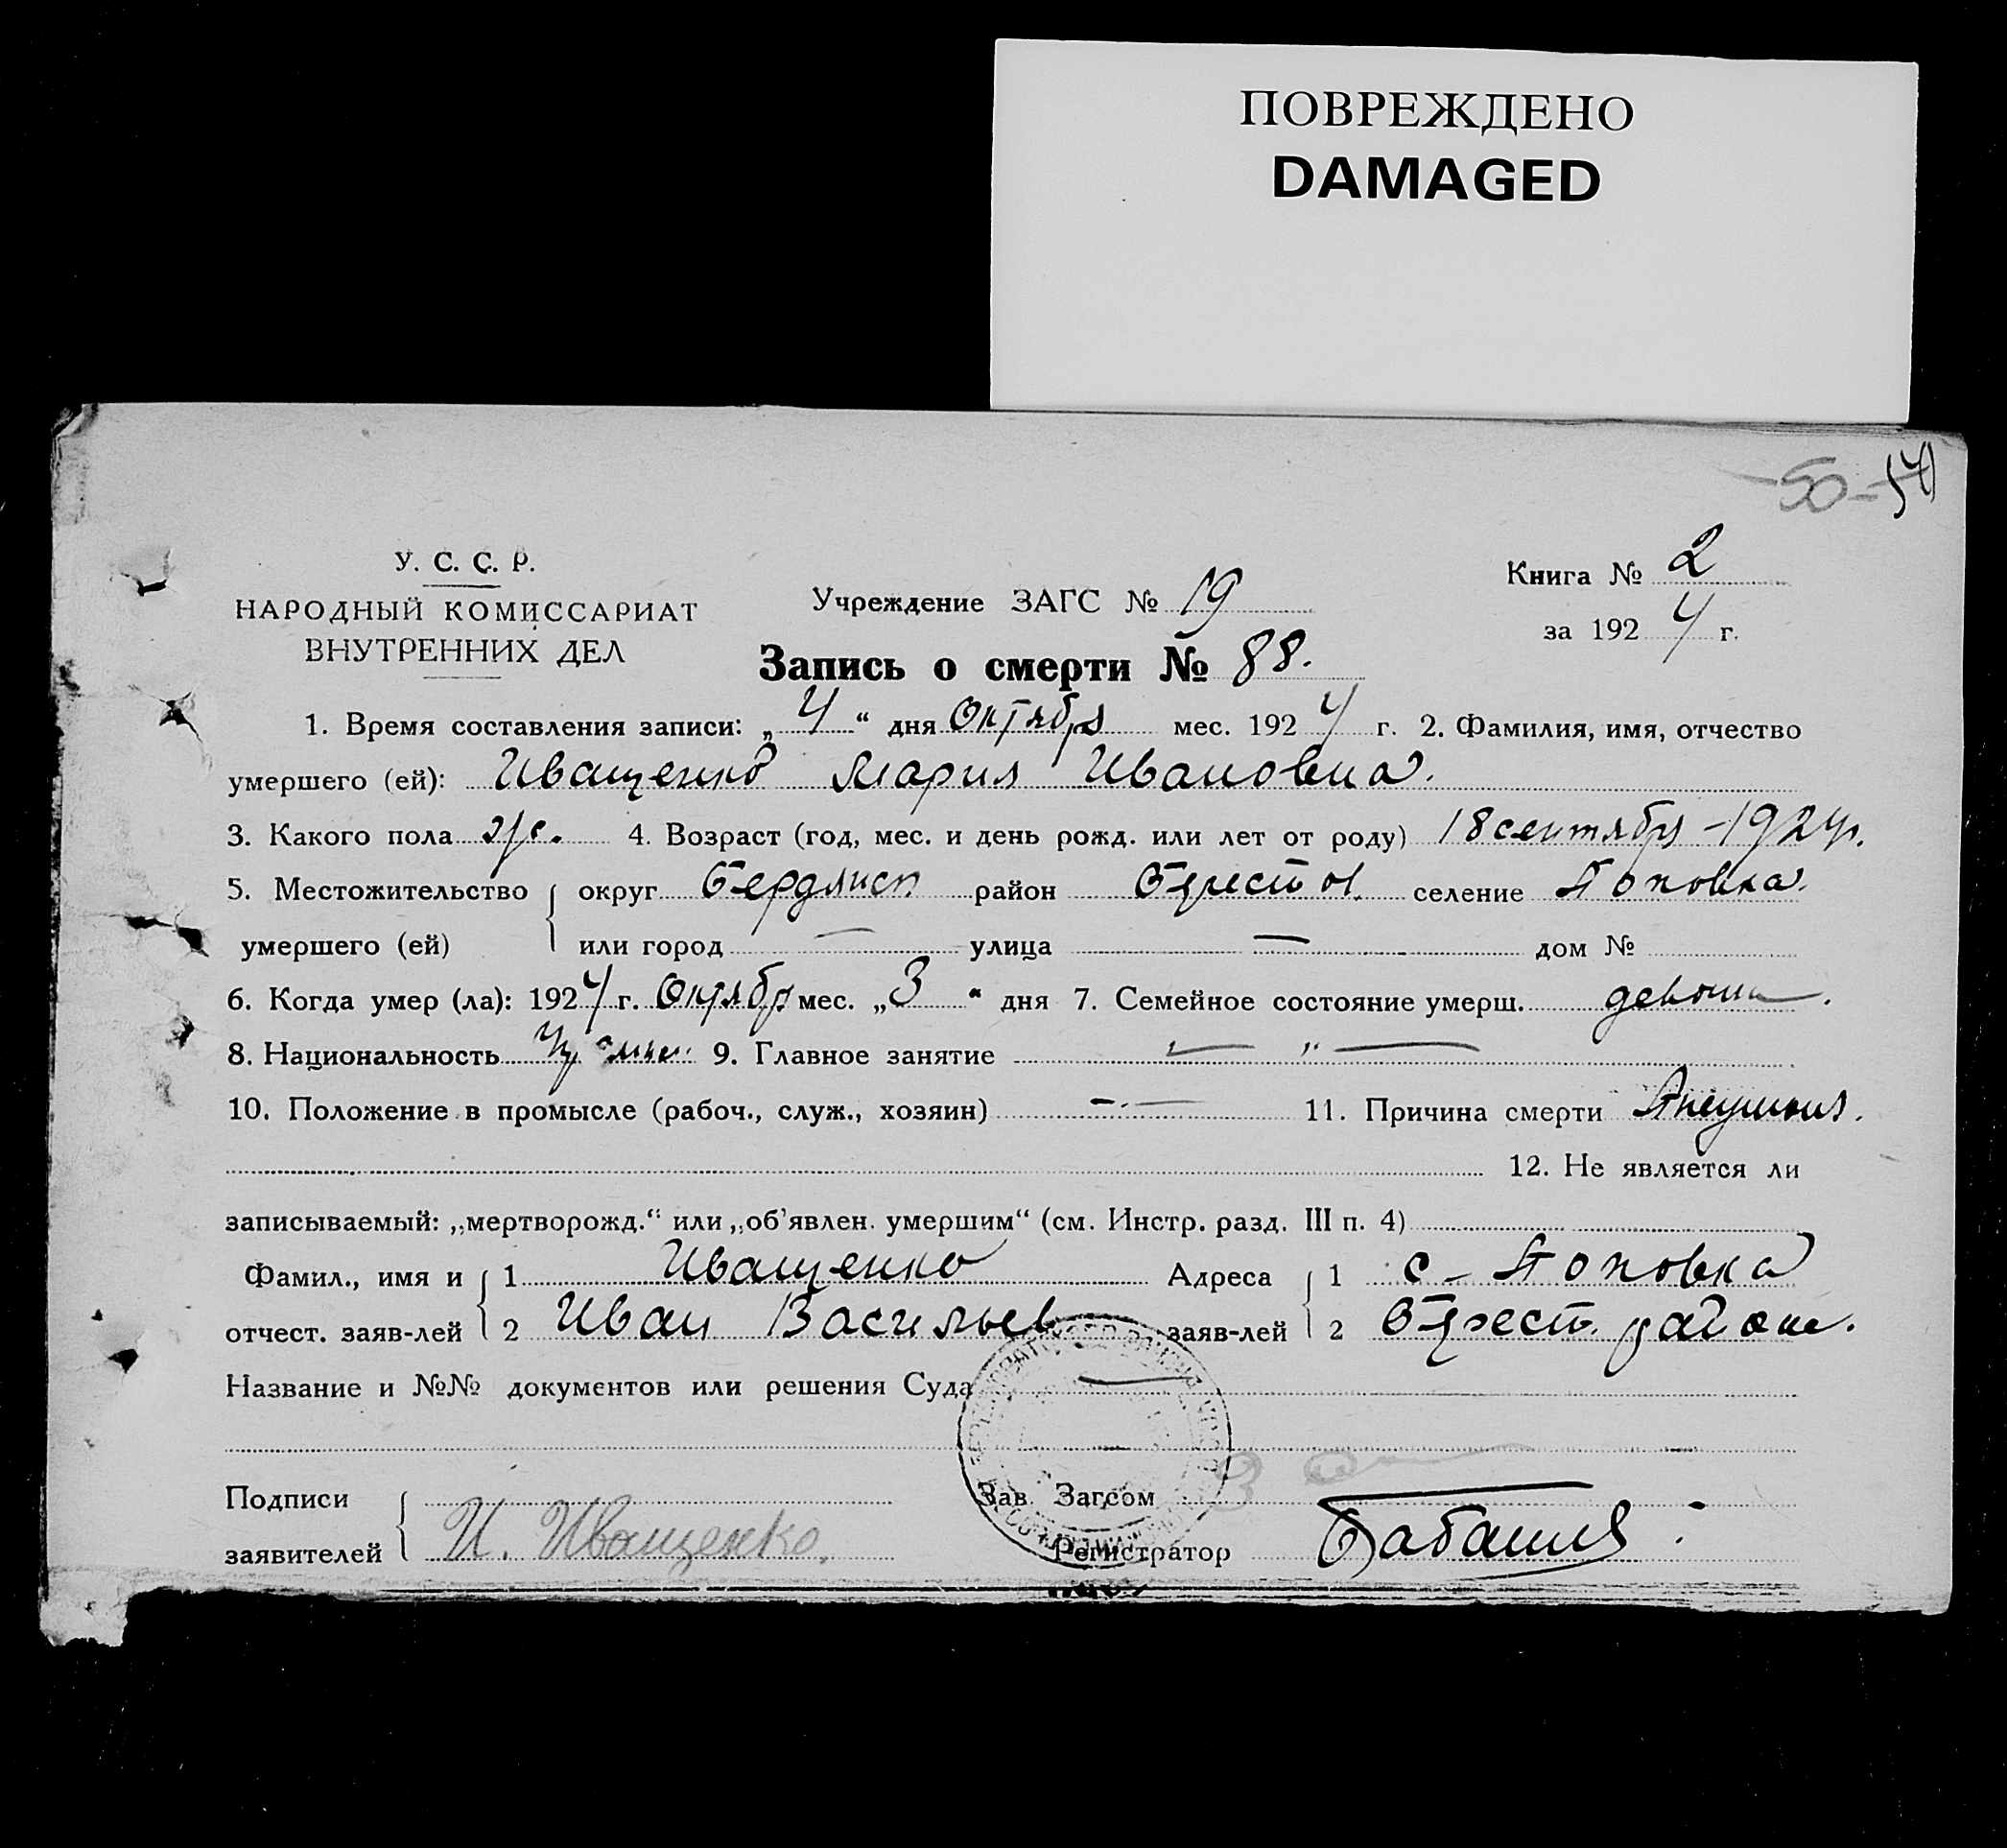 ПОВРЕЖДЕНО
DAMAGED
-50-
У. С. С. Р.
НАРОДНЫЙ КОМИССАРИАТ
ВНУТРЕННИХ ДЕЛ
Учреждение ЗАГС № 19
Книга № 2
за 1924 г.
Запись о смерти № 88.
1. Время составления записи: „4“ дня Октября мес. 1924 г. 2. Фамилия, имя, отчество
умершего (ей): Иващенко Мария Ивановна.
3. Какого пола ж. 4. Возраст (год, мес. и день рожд. или лет от роду) 18 сентября - 1924 г.
5. Местожительство округ Бердянск район Берестов. селение Поповка.
умершего (ей) или город — улица — дом №
6. Когда умер (ла): 1924 г. Октябр мес. „3“ дня 7. Семейное состояние умерш.
8. Национальность 9. Главное занятие — „ —
10. Положение в промысле (рабоч., служ., хозяин) — 11. Причина смерти Пнеумония.
12. Не является ли
записываемый: „мертворожд.“ или „об'явлен. умершим“ (см. Инстр. разд. III п. 4)
Фамил., имя и 1 Иващенко Адреса 1 с - Поповка
отчест. заяв-лей 2 Иван Васильев заяв-лей 2 Берест. района.
Название и №№ документов или решения Суда —
Подписи Зав. Загсом
заявителей И. Иващенко. Регистратор